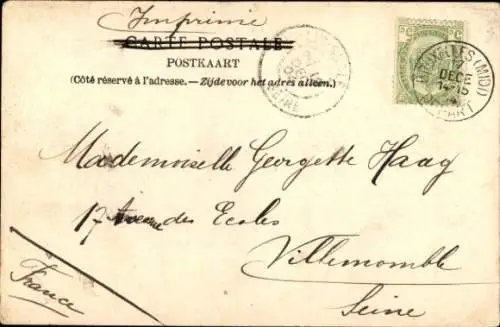 Imprimé
CARTE POSTALE
POSTKAART
(Côté réservé à l'adresse. — Zijde voor het adres alleen.)
5 C 5 C
BRUXELLES (MIDI)
DEC
14-15
DEPART
Mademoiselle Georgette Haag
17 Avenue des Ecoles
Villemomble
Seine
France